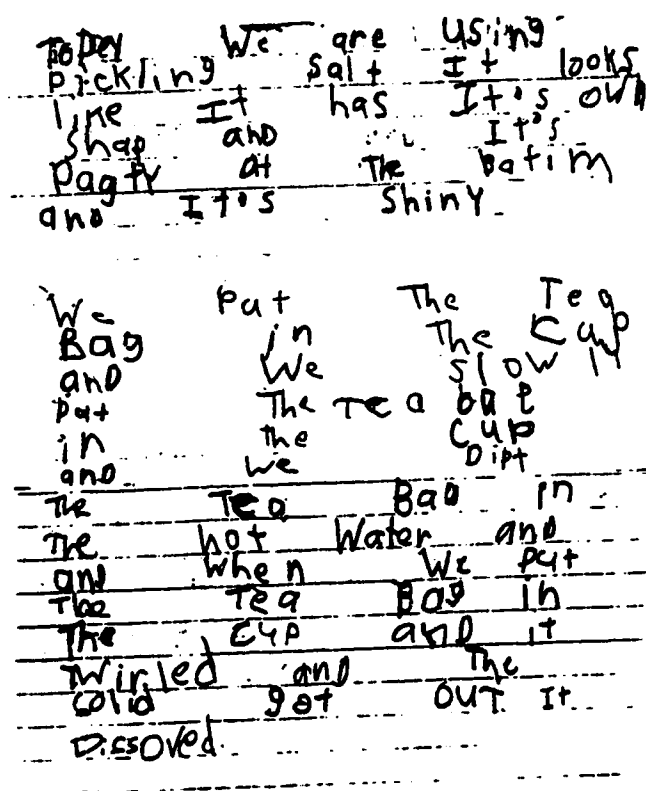 ToDey We are using
pickling salt It looks
like It has It's own
Shap and It's
Pagty at The batim
and It's shiny
We Put The Tea
Bag in The Cup
and We slowly
Pat The Tea bat
in the Cup
and we Dipt
The Tea Bag in
The hot Water and
and When We put
The Tea Bag in
The Cup and it
Twirled and The
Solid got OUT It
Dissoved